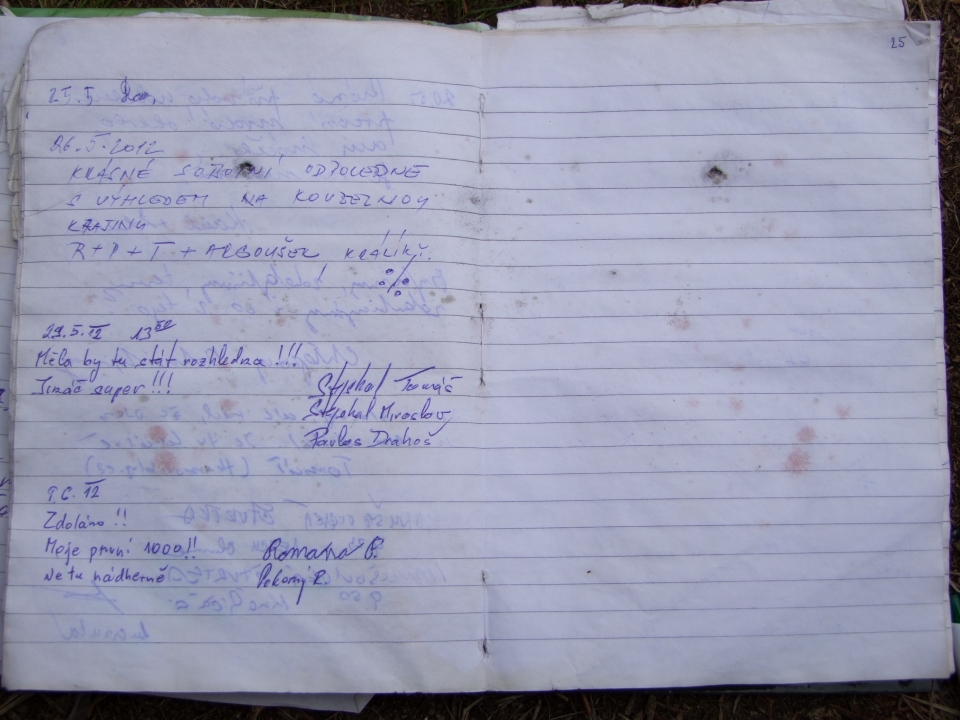 25
25.5
26.5.2012
KRÁSNÉ SOBOTNÍ ODPOLEDNE
S VÝHLEDEM NA KOUZELNOU
KRAJINU
R+P+T+ARGOUŠEK KRÁLÍKY.
29.5. 12 13 50
Měla by tu stát rozhledna !!!
Jináč super!!! Stejskal Tomáš
Stejskal Miroslav
Pavlas Drahoš
9.6. 12
Zdoláno !!
Moje první 1000!! Romana P.
Je tu nádherně Pokorný R.